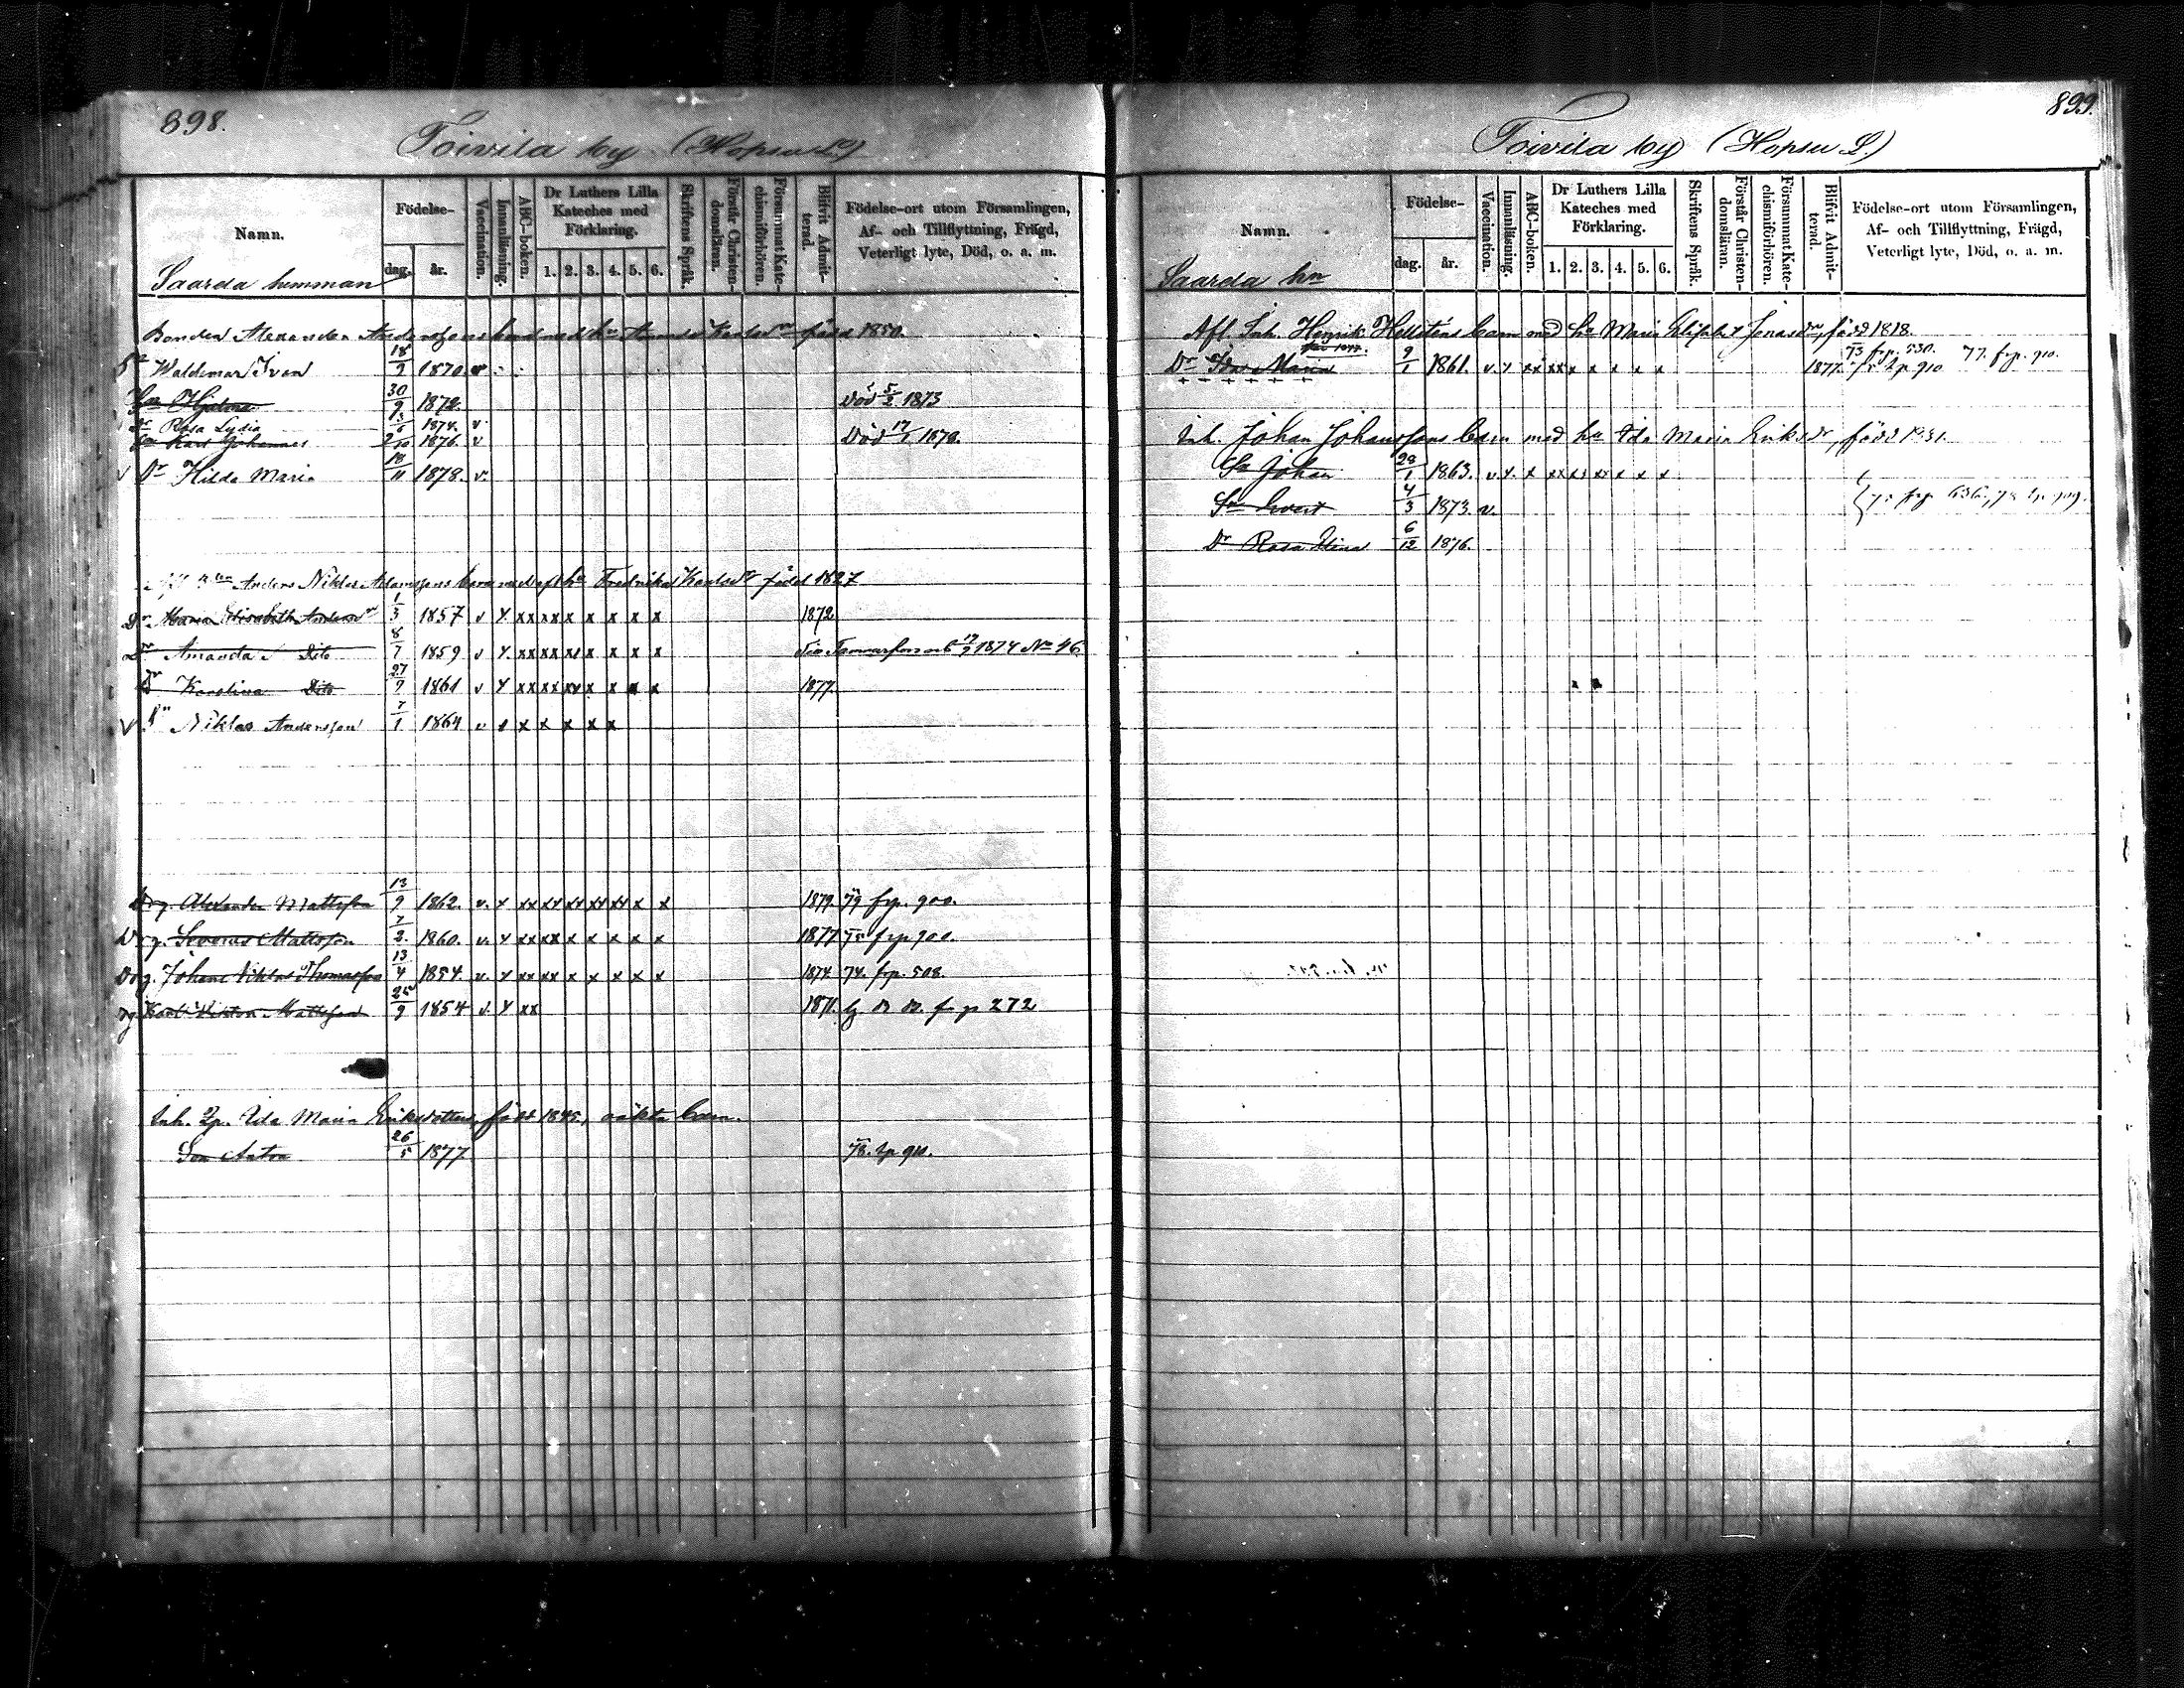 898.
Toivila by (Hopsu L.)
Namn.
Födelse-
dag.
år.
Vaccination.
Innanläsning.
ABC-boken.
Dr Luthers Lilla Kateches med Förklaring.
1. 2. 3. 4. 5. 6.
Skriftens Språk.
Förstår Christendomsläran.
Försummat Katechismiförhören.
Blifvit Admitterad.
Födelse-ort utom Församlingen, Af- och Tillflyttning, Frägd, Veterligt lyte, Död, o. a. m.
Saarela hemman
Bonden Alexander Anderssons barn med hu Amanda Karlsdr född 1850.
Sn Waldemar Ivan 18/9 1870. v
Son Hjalmar 30/9 1872. Död 5/2 1873
Dr Rosa Lydia 1874. v
Son Karl Johannes 2/10 1876. v Död 17/1 1878.
v Dr Hilda Maria 18/11 1878. v.
Anders Niklas Adamssons barn med afl. hu Fredrika Karlsdr född 1827
Dr Maria Elisabeth Andersdr 1/3 1857 v y xx xx x x x x x 1872
Dr Amanda Dito 8/7 1859 v y xx xx x x x x x Tammerfors 1874 No 46
Dr Karolina Dito 27/9 1861 v y xx xx xx x x x x 1877.
v Sn Niklas Andersson 7/1 1864 v x x x x x
Drg. Alexander Mattsson 13/9 1862. v. y xx xx xx xx xx x x 1879. 79 frp. 900.
Drg. Severus Mattsson 7/2 1860. v. y xx xx x x x x x 1877 frp 900.
Drg. Johan Niklas Thomasson 13/4 1854. v. y xx xx x x x x x 1874. 74. frp. 508.
Drg Karl Viktor Mattsson 25/9 1854 v. y xx 1871. fr p 272
Inh. Qp. Ida Maria Eriksdotters, född 1845, oäkta barn.
Son Anton 26/5 1877 78. tp 910.
899.
Toivila by (Hopsu L.)
Namn.
Födelse-
dag.
år.
Vaccination.
Innanläsning.
ABC-boken.
Dr Luthers Lilla Kateches med Förklaring.
1. 2. 3. 4. 5. 6.
Skriftens Språk.
Förstår Christendomsläran.
Försummat Katechismiförhören.
Blifvit Admitterad.
Födelse-ort utom Församlingen, Af- och Tillflyttning, Frägd, Veterligt lyte, Död, o. a. m.
Saarela hn
Afl. Inh. Henrik Hellsténs barn med hu Maria Elisabet Jonasdr, född 1818.
Dr Ida Maria 9/1 1861. v. y xx xx x x x x x 1877. 73 frp. 530. 77. frp. 910.
Inh. Johan Johanssons barn med hu Ida Maria Eriksdr, född
Sn Johan 28/1 1863. v. y. x xx xx xx x x x
Sn Evert 4/3 1873. v. frp 636, 78 tp 909.
Dr Rosa Elina 6/12 1876.